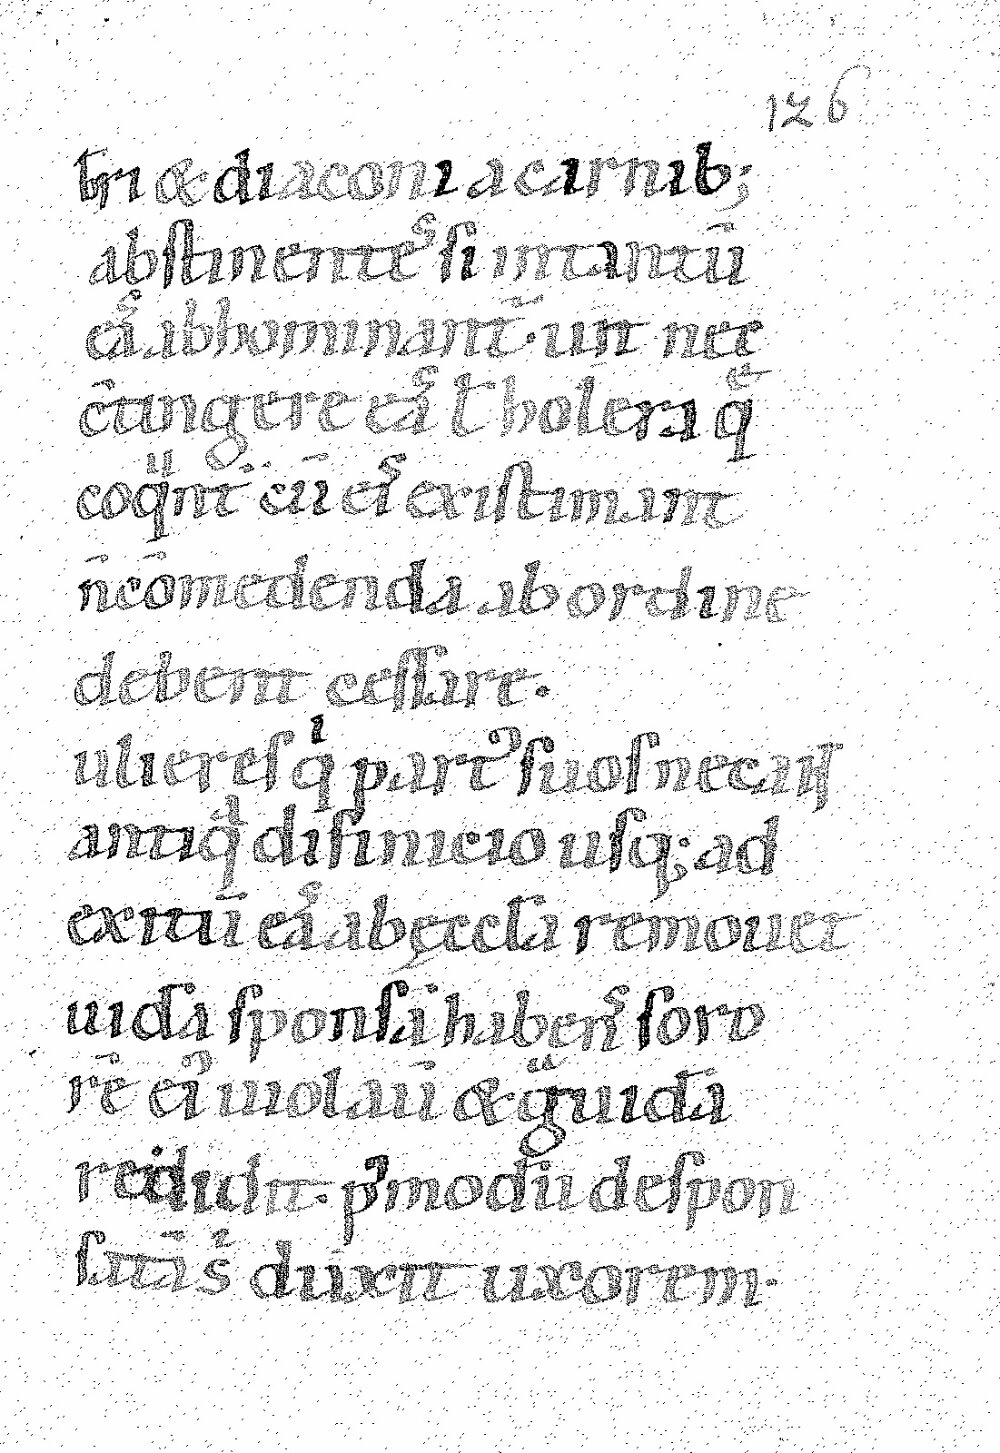 126
b̄ri & diaconi a carnib;
abstinenteſ ſi intantū
eaſ abhominant̄· ut nec
c̄tingere eaſ ł holera q̄
coq̈nt̄ cū eiſ existimant
n̄ cōmedenda ab ordine
debent ceſſare.
uliereſ qi part᾽ ſuoſ necant
antiqa difinicio uſq; ad
exitū eaſ ab ęccl̄ia remouet
uidā ſponſā habenſ ſoro
rē ei᾽ uiolauī & grauidā
reddidit· p᾽modū deſpon
ſatā s duxit uxorem·